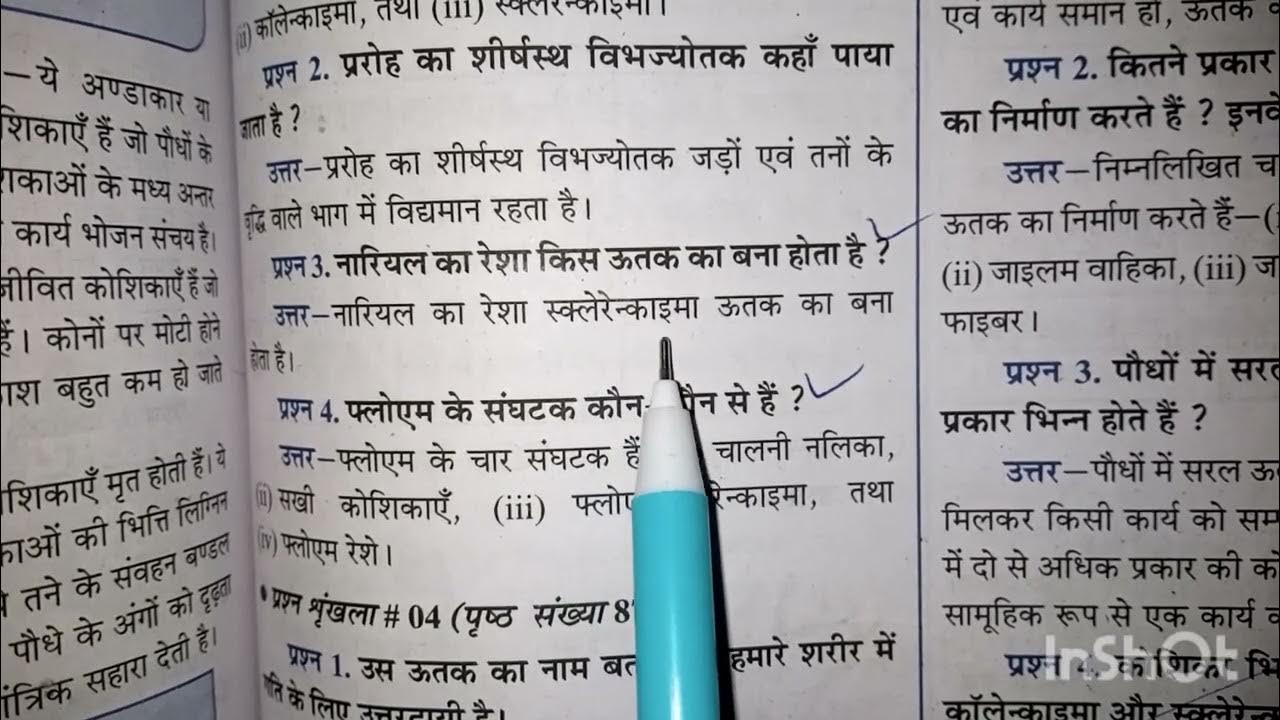 —ये अण्डाकार या
शिकाएँ हैं जो पौधों के
काओं के मध्य अन्तर
कार्य भोजन संचय है।
जीवित कोशिकाएँ हैं जो
हैं। कोनों पर मोटी होने
बहुत कम हो जाते
शिकाएँ मृत होती हैं। ये
काओं की भित्ति लिग्निन
तने के संवहन बण्डल
पौधे के अंगों को दृढ़ता
सहारा देती है।
(ii) कॉलेन्काइमा, तथा (iii) स्क्लेरेन्काइमा।
प्रश्न 2. प्ररोह का शीर्षस्थ विभज्योतक कहाँ पाया
जाता है ?
उत्तर—प्ररोह का शीर्षस्थ विभज्योतक जड़ों एवं तनों के
वृद्धि वाले भाग में विद्यमान रहता है।
प्रश्न 3. नारियल का रेशा किस ऊतक का बना होता है ?
उत्तर—नारियल का रेशा स्क्लेरेन्काइमा ऊतक का बना
होता है।
प्रश्न 4. फ्लोएम के संघटक कौन- से हैं ?
उत्तर—फ्लोएम के चार संघटक हैं चालनी नलिका,
(ii) सखी कोशिकाएँ, (iii) तथा
(iv) फ्लोएम रेशे।
• प्रश्न शृंखला # 04 (पृष्ठ संख्या
प्रश्न 1. उस ऊतक का नाम हमारे शरीर में
के लिए उत्तरदायी है।
एवं कार्य समान हो, ऊतक
प्रश्न 2. कितने प्रकार
का निर्माण करते हैं ? इनके
उत्तर—निम्नलिखित
ऊतक का निर्माण करते हैं—(
(ii) जाइलम वाहिका, (iii)
फाइबर।
प्रश्न 3. पौधों में सरल
प्रकार भिन्न होते हैं ?
उत्तर—पौधों में सरल
मिलकर किसी कार्य को
में दो से अधिक प्रकार की
सामूहिक रूप से एक कार्य
प्रश्न 4. कोशिका
कॉलेन्काइमा और
InShOt